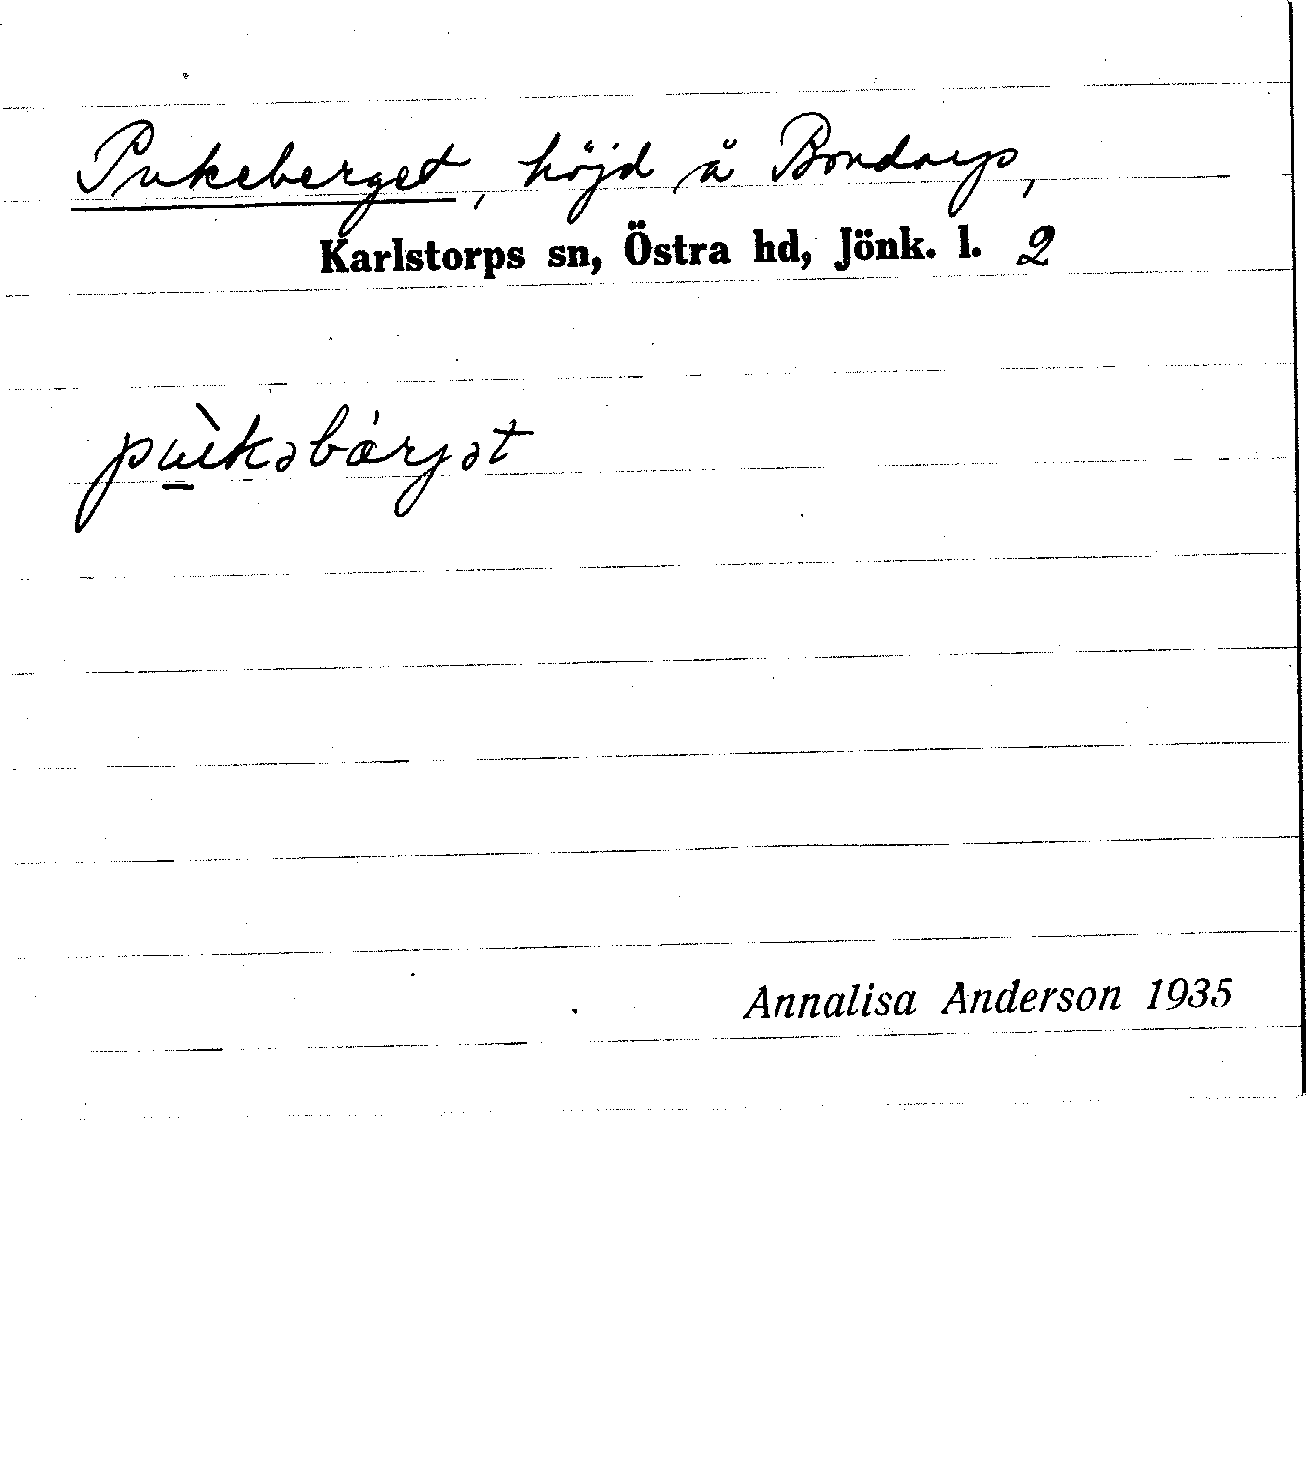 Pukeberget, höjd å Bondarp,
Karlstorps sn, Östra hd, Jönk. l. 2
pù̲kəbærjət
Annalisa Anderson 1935